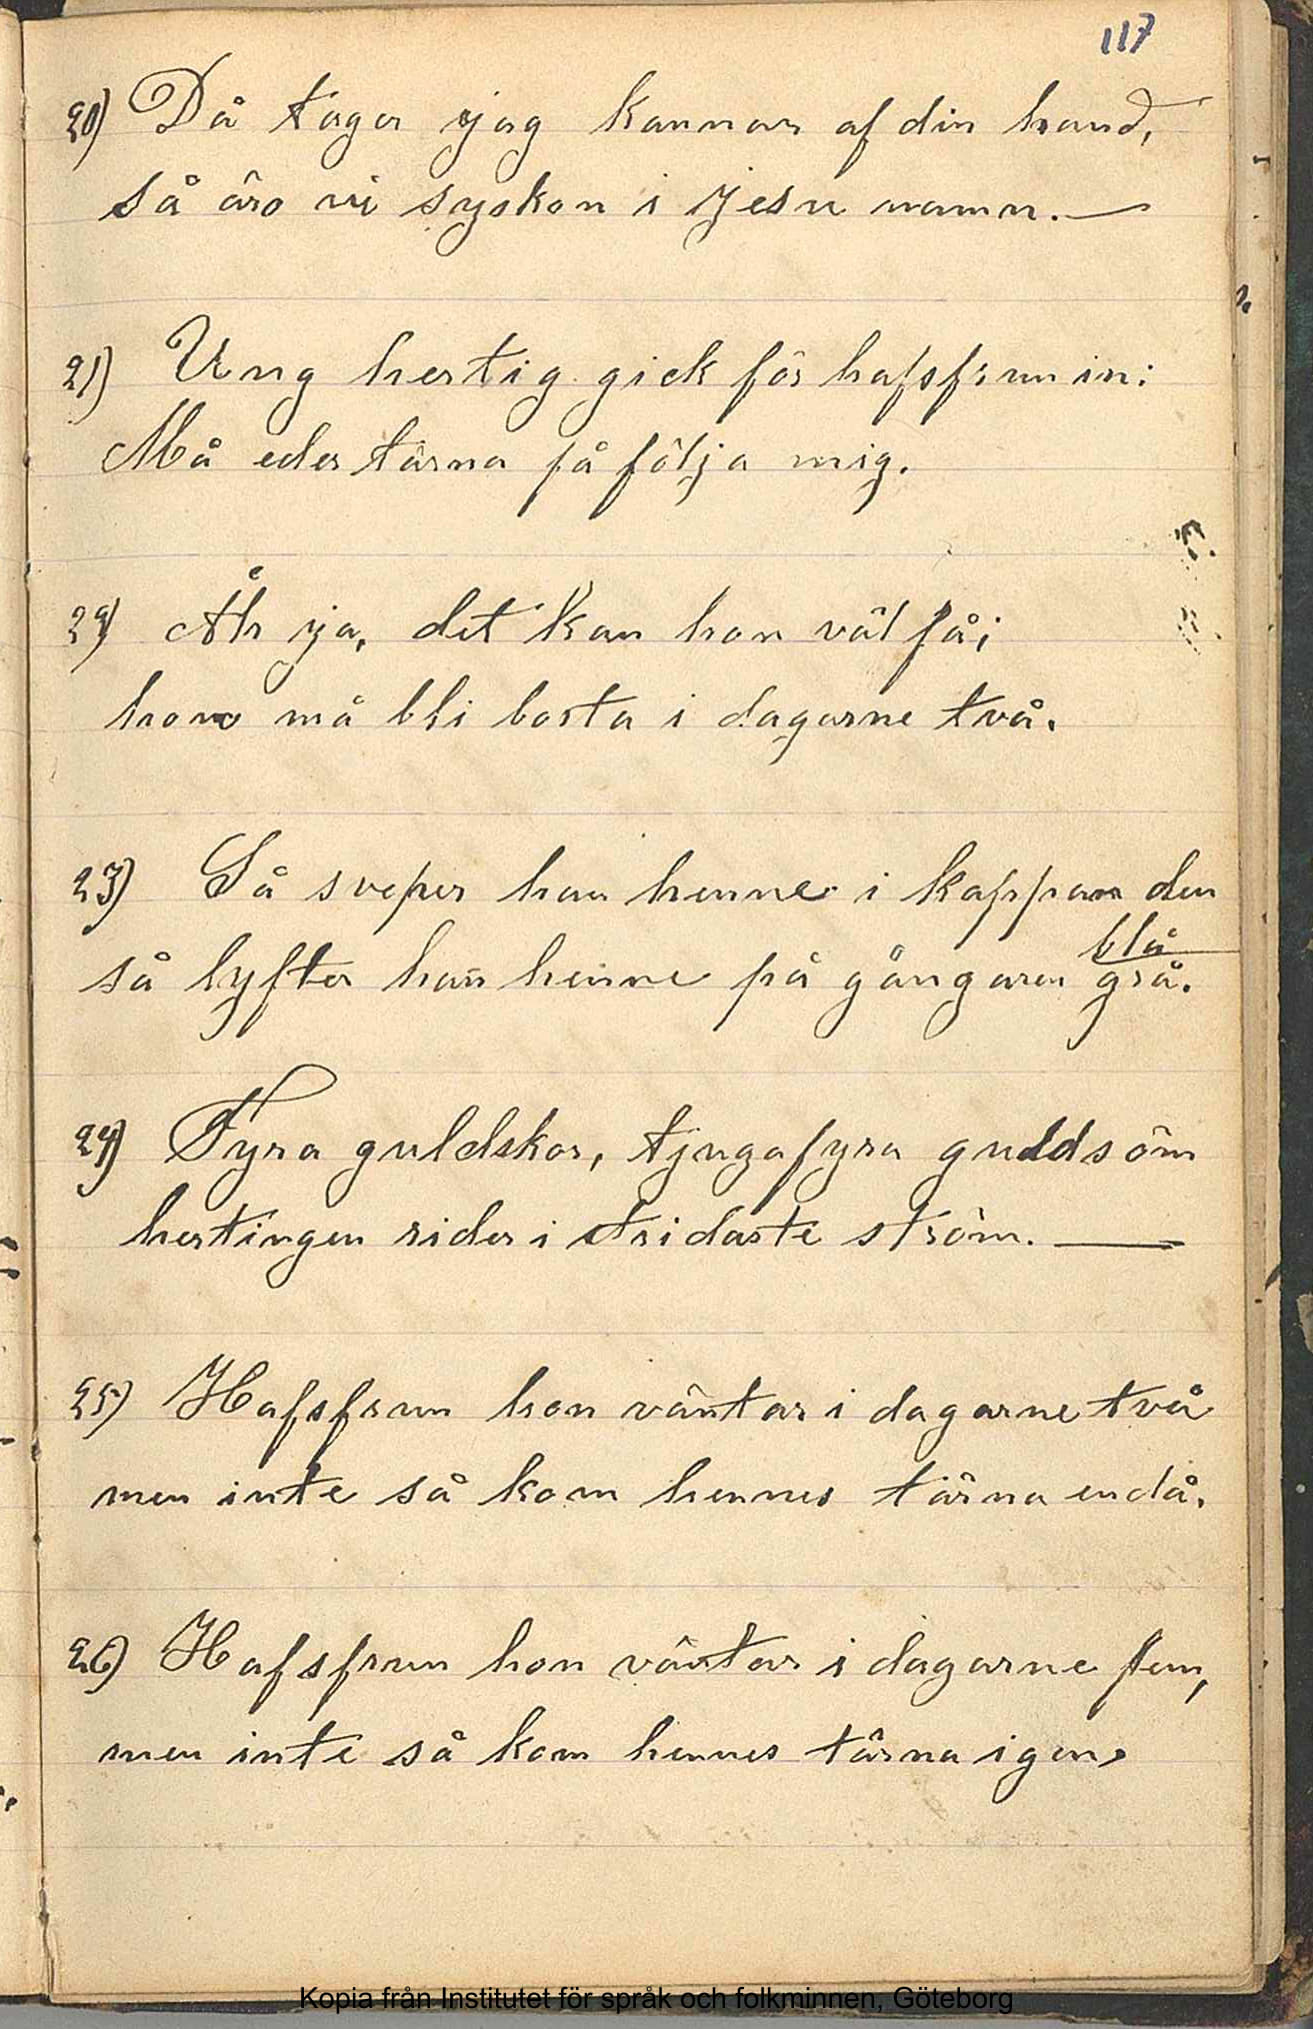 117
20) Då tager jag kannan af din hand,
så äro vi syskon i Jesu namn. —
21) Ung hertig gick för hafsfrun in:
Må eder tärna få följa mig.
22) Åh ja, det kan hon väl få;
hon må bli borta i dagarne två.
23) Så sveper han henne i kappan den
blå
så lyfter han henne på gångaren grå.
24) Fyra guldskor, tjugafyra guldsöm
hertingen rider i stridaste ström. —
25) Hafsfrun hon väntar i dagarne två
men inte så kom hennes tärna endå.
26) Hafsfrun hon väntar i dagarne fem,
men inte så kom hennes tärna igen.
Kopia från Institutet för språk och folkminnen, Göteborg